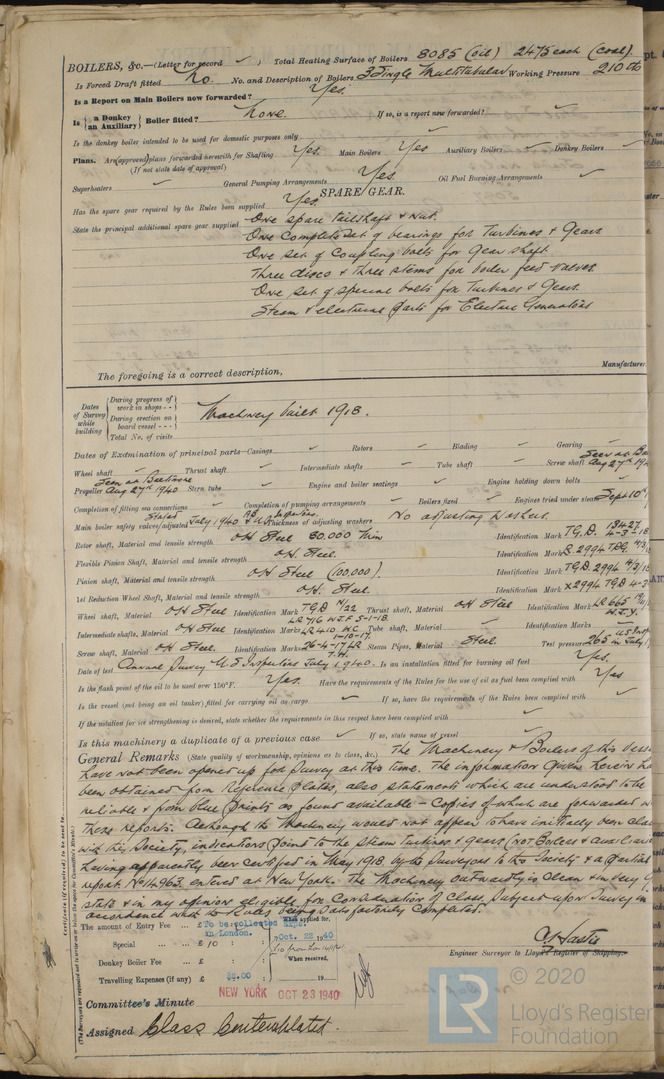 BOILERS, &c.—(Letter for record ✓ ) Total Heating Surface of Boilers 8085 (oil) 2475 each (coal)
Is Forced Draft fitted No. No. and Description of Boilers 3 Single Multitubular Working Pressure 210 lb
Is a Report on Main Boilers now forwarded? Yes.
Is { a Donkey / an Auxiliary } Boiler fitted? None. If so, is a report now forwarded? ✓
Is the donkey boiler intended to be used for domestic purposes only ✓
Plans. Are (approved) plans forwarded herewith for Shafting Yes. Main Boilers Yes Auxiliary Boilers ✓ Donkey Boilers ✓
(If not state date of approval)
Superheaters ✓ General Pumping Arrangements Yes Oil Fuel Burning Arrangements ✓
SPARE GEAR.
Has the spare gear required by the Rules been supplied Yes.
State the principal additional spare gear supplied One spare tailshaft & nut.
One complete set of bearings for Turbines & Gears
One set of Coupling bolts for Gear shaft.
Three discs & three stems for boiler feed valves
One set of special bolts for Turbines & Gears.
Steam & electrical parts for Electric Generators
The foregoing is a correct description,
Manufacturer
Dates of Survey while building
During progress of work in shops - -
During erection on board vessel - - -
Total No. of visits
Machinery built 1918.
Dates of Examination of principal parts—Casings ✓ Rotors ✓ Blading ✓ Gearing ✓
Wheel shaft ✓ Thrust shaft ✓ Intermediate shafts ✓ Tube shaft ✓ Screw shaft Seen at Aug 27th 194
Propeller Seen at Aug 27th 1940 Stern tube ✓ Engine and boiler seatings ✓ Engine holding down bolts ✓
Completion of fitting sea connections ✓ Completion of pumping arrangements ✓ Boilers fixed ✓ Engines tried under steam Sept 10th
Main boiler safety valves adjusted Stated July 1940 Thickness of adjusting washers No adjusting Washers.
Rotor shaft, Material and tensile strength OH Steel 80,000 Min Identification Mark T.G.D.
Flexible Pinion Shaft, Material and tensile strength OH Steel. Identification Mark
Pinion shaft, Material and tensile strength OH Steel (100,000). Identification Mark TGD 2994
1st Reduction Wheel Shaft, Material and tensile strength OH. Steel Identification Mark X2994 TGD 4-3-
Wheel shaft, Material OH Steel Identification Mark TGD Thrust shaft, Material OH Steel Identification Mark LR 665
LR 716 W.J.F. 5-1-18.
Intermediate shafts, Material OH Steel Identification Marks LR 410 Tube shaft, Material ✓ Identification Marks ✓
1-10-17.
Screw shaft, Material OH Steel. Identification Mark 26-4-17 LR Steam Pipes, Material Steel. Test pressure 265
Date of test Annual Survey U.S. Inspectors July 1940. Is an installation fitted for burning oil fuel Yes.
Is the flash point of the oil to be used over 150°F. Yes. Have the requirements of the Rules for the use of oil as fuel been complied with Yes
Is the vessel (not being an oil tanker) fitted for carrying oil as cargo ✓ If so, have the requirements of the Rules been complied with ✓
If the notation for ice strengthening is desired, state whether the requirements in this respect have been complied with ✓
Is this machinery a duplicate of a previous case ✓ If so, state name of vessel ✓
General Remarks (State quality of workmanship, opinions as to class, &c.) The Machinery & Boilers of this vessel
have not been opened up for Survey at this time. The information given herein ha
been obtained from Reference plates, also statements which are understood to be
reliable & from blue prints as found available – Copies of which are forwarded w
these reports. Although the Machinery would not appear to have initially been clas
with this Society, indications point to the Steam Turbines & gears (not Boilers & auxiliari
having apparently been certified in May 1918 by the Surveyors to this Society & a partial
report No 14963, entered at New York. The Machinery outwardly is clean & in very g
state & in my opinion eligible for Consideration of Class, Subject upon Survey in
accordance with the Rules being satisfactorily completed.
The amount of Entry Fee ... £ To be collected When applied for,
in London. Oct. 22 1940
Special ... £10 : :
Donkey Boiler Fee ... £ : : When received,
Travelling Expenses (if any) £ $5.00 19
NEW YORK OCT 23 1940
Engineer Surveyor to Lloyd's Register of Shipping.
Committee's Minute
Assigned Class Contemplated.
Certificate (if required) to be sent to
(The Surveyors are requested not to write on or below the space for Committee's Minute.)
LR
© 2020
Lloyd's Register
Foundation